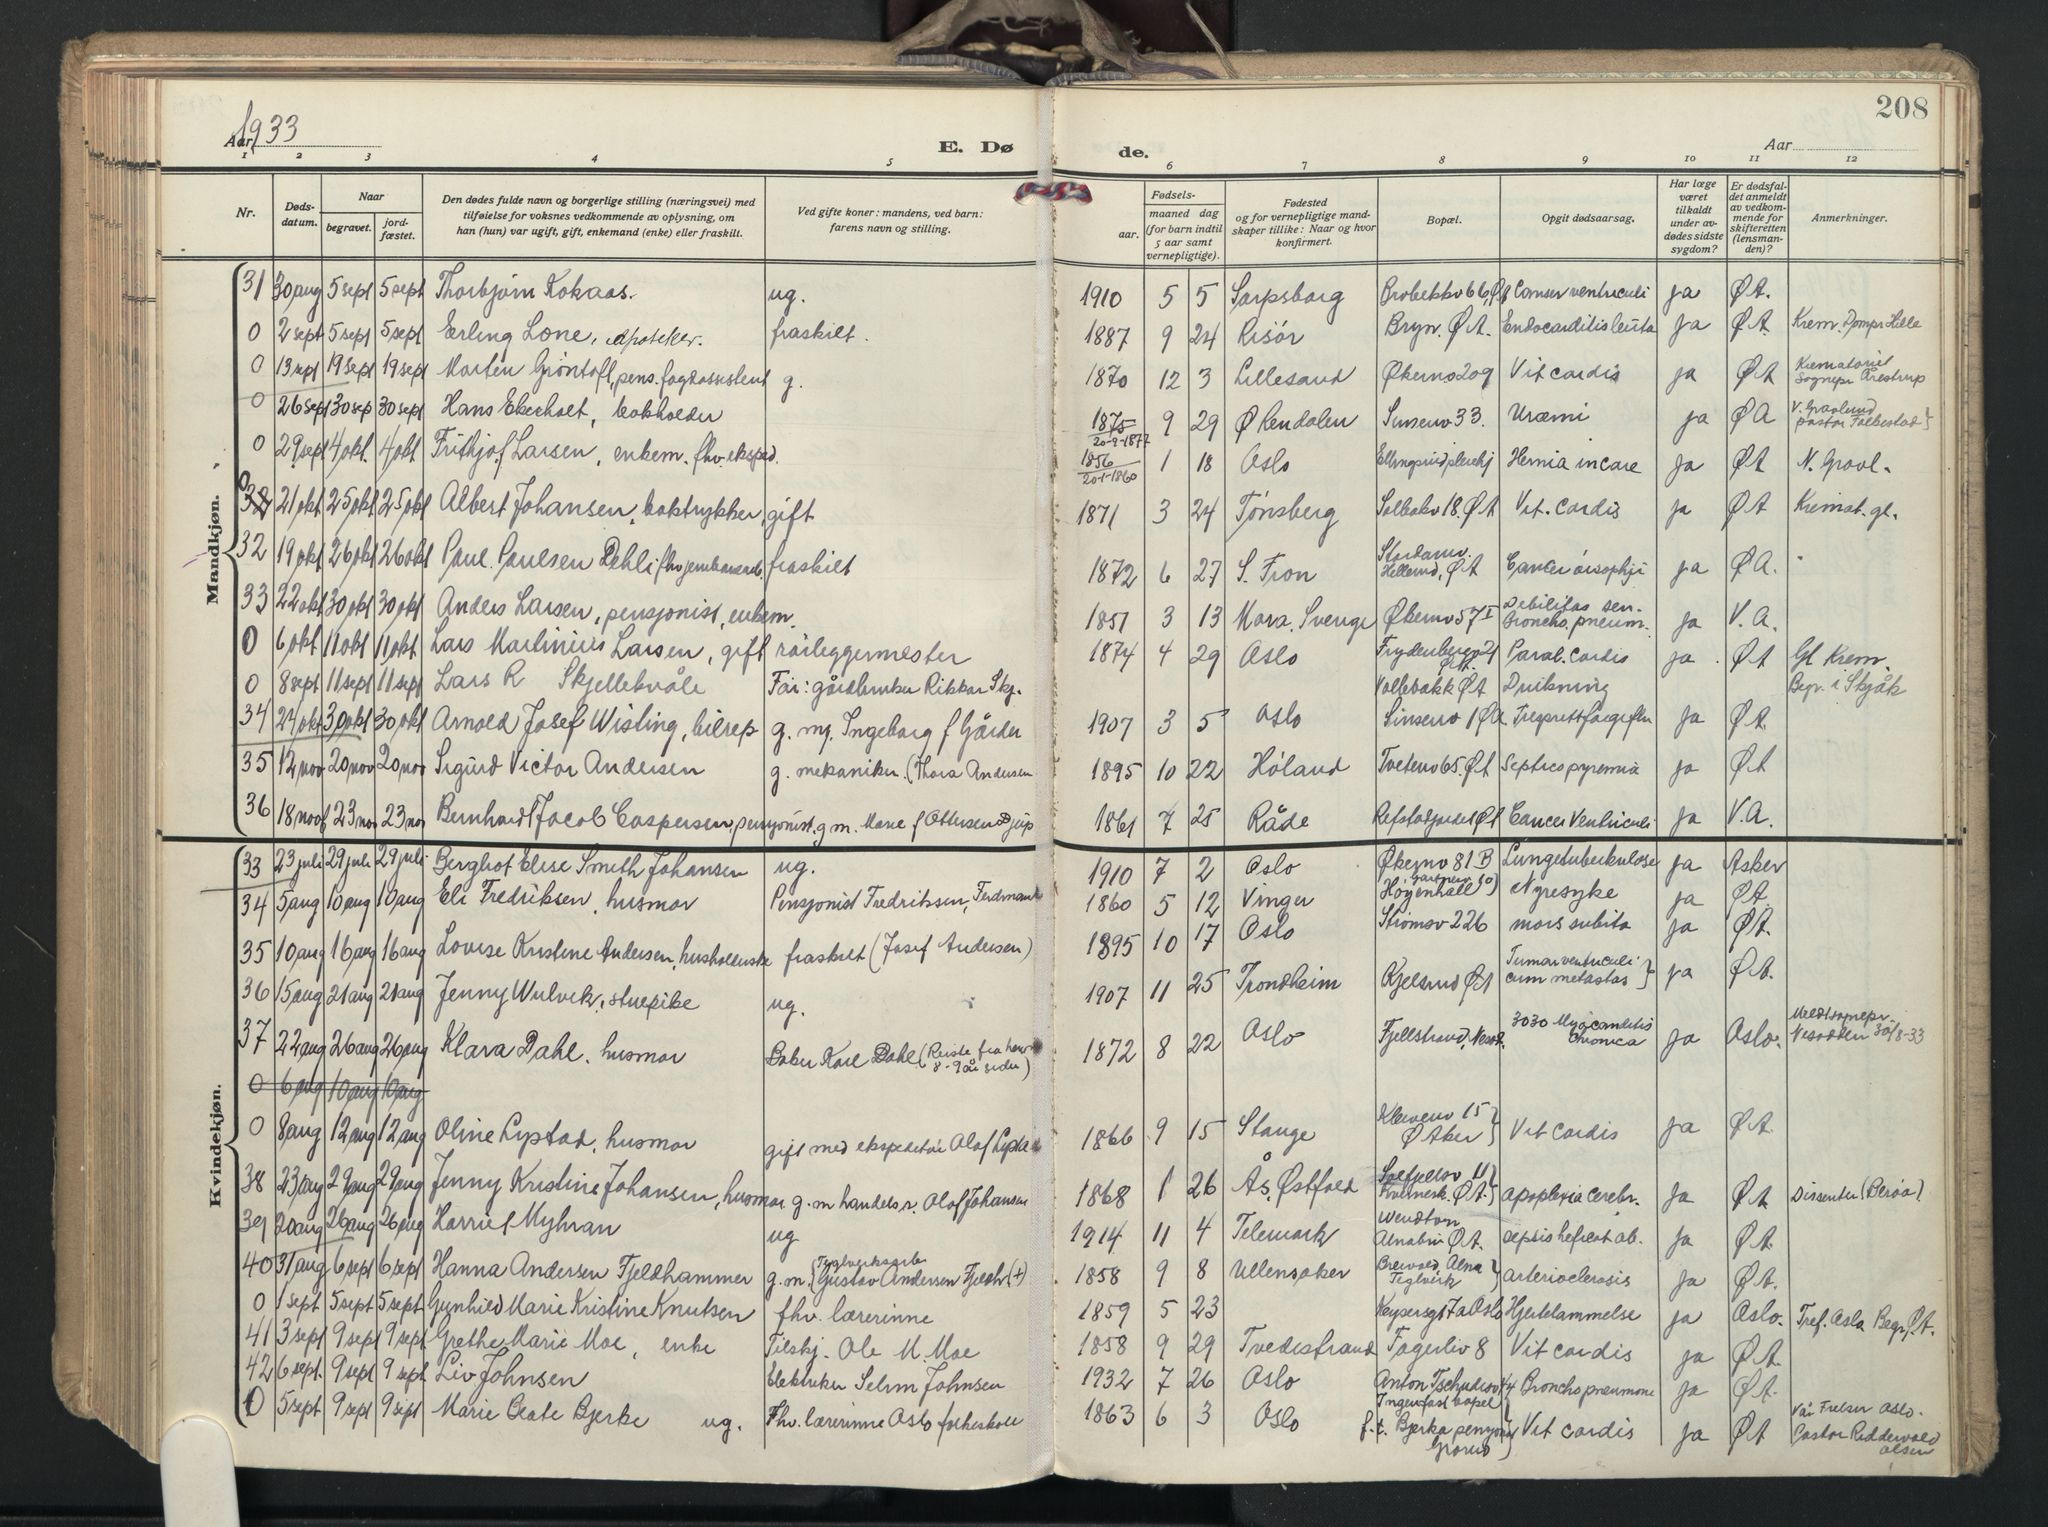 208
Aar 1933
E. Dø
de.
Aar
1 2 3 4 5 6 7 8 9 10 11 12
Nr.
Døds-
datum.
Naar
begravet.
jord-
fæstet.
Den dødes fulde navn og borgerlige stilling (næringsvei) med
tilføielse for voksnes vedkommende av oplysning, om
han (hun) var ugift, gift, enkemand (enke) eller fraskilt.
Ved gifte koner: mandens, ved barn:
farens navn og stilling.
Fødsels-
aar.
maaned dag
(for barn indtil
5 aar samt
vernepligtige).
Fødested
og for vernepligtige mand-
skaper tillike: Naar og hvor
konfirmert.
Bopæl.
Opgit dødsaarsag.
Har læge
været
tilkaldt
under av-
dødes sidste
sygdom?
Er dødsfal-
det anmeldt
av vedkom-
mende for
skifteretten
(lensman-
den)?
Anmerkninger.
Mandkjøn.
31 30 aug 5 sept 5 sept Thorbjørn Kokaas. ug. 1910 5 5 Sarpsborg Cancer ventriculi ja Ø A.
0 2 sept 5 sept 5 sept Erling Lone, apoteker. fraskilt. 1887 9 24 Risör Bryn. Ø A. Endocarditis lenta ja Ø A. Krem.
0 13 sept 19 sept 19 sept Morten Grøntoft, pens. g. 1870 12 3 Lillesand Økernv 209 Vit cardis ja Ø A Krematoriet
Sognepr Arestrup
0 26 sept 30 sep 30 sept Hans Ekerholt, bokholder 1875 9 29 Ø Rendalen Sinsenv 33. Uræmi ja Ø A
20-9-1877
0 29 sept 4 okt. 4 okt Frithjof Larsen, enkem. fhv. eksped. 1856 1 18 Oslo Hernia incare ja Ø A N. Gravl.
20-1-1860
0 21 okt 25 okt 25 okt Albert Johansen, boktrykker, gift 1871 3 24 Tønsberg 18. Ø A Vit. cordis ja Ø A Kremat. gl.
32 19 okt 26 okt 26 okt Paul Paulsen Dehli fraskilt 1872 6 27 S. Fron Hellerud, Ø A Cancer ja Ø A.
33 22 okt 30 okt 30 okt Anders Larsen, pensjonist, enkem. 1851 3 13 Mora. Sverige Økernv 57 I Debilitas sen.
Broncho.pneum. ja V. A.
0 6 okt 11 okt 11 okt Lars Martinius Larsen, gift rörleggermester 1874 4 29 Oslo Paral. cordis ja Ø A Gl Krem.
0 8 sept 11 sept 11 sept Lars R Skjellekvåle Far: gårdbruker Rikkar Skj. Vollebækk Ø A Drukning Begr. i Skjåk
34 24 okt 30 okt 30 okt Arnold Josef Wisting, bilrep g. m. Ingeborg f Gårder 1907 3 5 Oslo Sinsenv 1 Ø A ja Ø A.
35 12 nov 20 nov 20 nov Sigurd Victor Andersen g. mekaniker. (Thora Andersen 1895 10 22 Høland Tvetenv 65. Ø A Septicopyremia ja Ø A
36 18 nov 23 nov 23 nov Bernhardt Jacob Caspersen, pensjonist, g. m. Marie f Ottersen 1861 7 25 Råde Ø A Cancer Ventriculi ja V. A.
Kvindekjøn.
33 23 juli 29 juli 29 juli Bergliot Elise Smith Johansen ug. 1910 7 2 Oslo Økernv 81 B Lungetuberkulose ja Asker
34 5 aug 10 aug 10 aug Eli Fredriksen, husmor Pensjonist Fredriksen, Ferdinand 1860 5 12 Vinger Høyenhall Nyresyke ja Ø A.
35 10 aug 16 aug 16 aug Lovise Kristine Andersen, husholderske fraskilt (Josef Andersen) 1895 10 17 Oslo Strömsv 226 mors subita ja Ø A.
36 15 aug 21 aug 21 aug Jenny Wulvik, stuepike ug. 1907 11 25 Trondheim Kjelsrud Ø A Tumor ventriculi
cum metastas ja Ø A.
37 22 aug 26 aug 26 aug Klara Dahl, husmor Baker Karl Dahl (Reiste fra ham
8-9 år siden) 1872 8 22 Oslo Fjellstrand, Nesod. 3030 Myocarditis
Chronica ja Oslo. Meldt sognepr.
Nesodden 30/8-33
0 6 aug 10 aug 10 aug
0 8 aug 12 aug 12 aug Oline Lystad, husmor gift med ekspeditör Olaf Lysta 1866 9 15 Stange 15
Ø Aker Vit cordis ja Ø A.
38 23 aug 29 aug 29 aug Jenny Kristine Johansen, husmor g. m handelsr. Olaf Johansen 1868 1 26 Ås, Østfold 11
Ø A. apoplexia cerebr. ja Ø A Dissenter (Berøa).
39 20 aug 26 aug 26 aug Harriet Myhran ug 1914 11 4 Telemark Alnabru Ø A. ja Ø A.
40 31 aug 6 sept 6 sept Hanna Andersen Fjeldhammer g. m. Teglverksarb
Gustav Andersen Fjeldh (+) 1858 9 8 Ullensaker Breivold, Alna
Teglverk arterioclerosis ja Ø A.
0 1 sept 5 sept 5 sept Gunhild Marie Kristine Knutsen fhv. lærerinne 1859 5 23 Keysersgt 7a Oslo Hjertelammelse ja Oslo. Tref. Oslo Begr. Ø. A.
41 3 sept 9 sept 9 sept Grethe Marie Moe, enke Tilskj. Ole M. Moe 1858 9 29 Tvedestrand Fagerliv 8 Vit cordis ja Ø A.
42 6 sept. 9 sept 9 sept Liv Johnsen Elektriker Selim Johnsen 1932 7 26 Oslo Anton Tschudisv 44 Bronchopneumoni ja Ø A.
0 5 sept 9 sept 9 sept Marie Beate Bjerke ug. Fhv. lærerinne Oslo folkeskole 1863 6 3 Oslo Ingen fast bopel
f.t. Bjerke pensjonat
Grorud Vit cordis ja Ø A Vår Frelser Oslo.
Pastor Ridderwold
Olsen